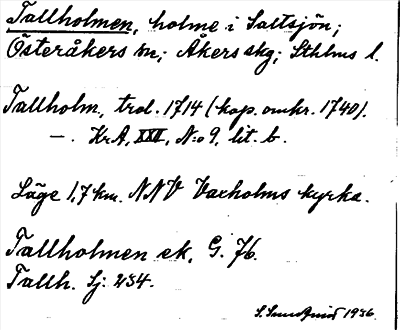 Tallholmen, holme i Saltsjön;
Österåkers sn; Åkers skg; Sthlms l.
Tallholm, trol. 1714 (kop. omkr. 1740).
—. KrA, XXI, N:o 9, lit. b.
Läge 1,7 km. NNV Vaxholms kyrka.
Tallholmen ek. G. 76.
Tallh. Sj. 234.
S. Sundquist 1936.